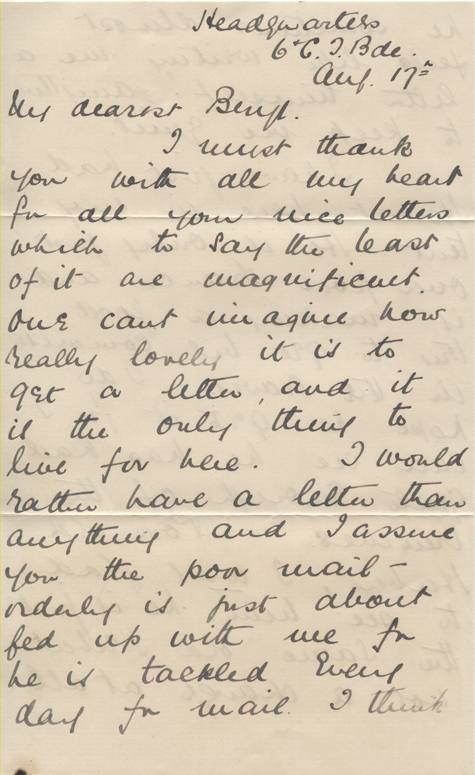 Headquarters
6th C. I Bde.
Aug. 17th
My dearest Beryl.
I must thank
you with all my heart
for all your nice letters
which to say the least
of it are magnificent.
One cant imagine how
really lovely it is to
get a letter, and it
is the only thing to
live for here. I would
rather have a letter than
anything and I assure
you the poor mail-
orderly is just about
fed up with me for
he is tackled Every
day for mail. I think